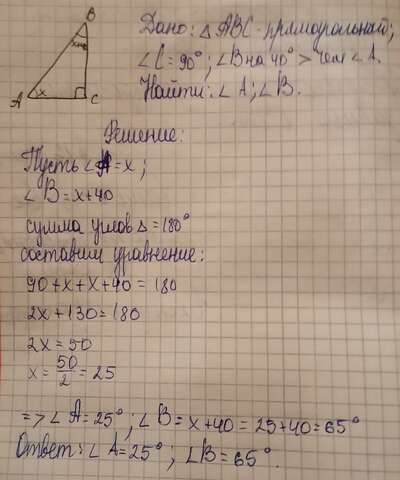 B
x+40
A
x
C
Дано: △ABC-прямоугольный;
∠C=90°; ∠B на 40° > чем ∠A.
Найти: ∠A; ∠B.
Решение:
Пусть ∠A=x;
∠B=x+40
сумма углов △=180°
составим уравнение:
90+x+x+40=180
2x+130=180
2x=50
x=50/2=25
=> ∠A=25°; ∠B=x+40=25+40=65°
Ответ: ∠A=25°; ∠B=65°.